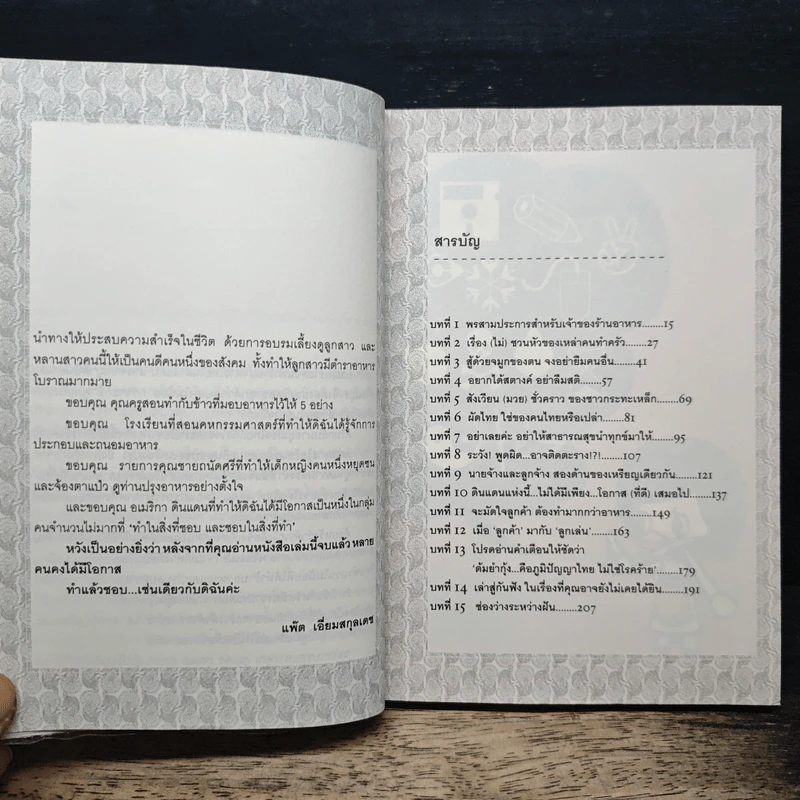 นำทางให้ประสบความสำเร็จในชีวิต ด้วยการอบรมเลี้ยงดูลูกสาว และ
หลานสาวคนนี้ให้เป็นคนดีคนหนึ่งของสังคม ทั้งทำให้ลูกสาวมีตำราอาหาร
โบราณมากมาย
ขอบคุณ คุณครูสอนทำกับข้าวที่มอบอาหารไว้ให้ 5 อย่าง
ขอบคุณ โรงเรียนที่สอนคหกรรมศาสตร์ที่ทำให้ดิฉันได้รู้จักการ
ประกอบและถนอมอาหาร
ขอบคุณ รายการคุณชายถนัดศรีที่ทำให้เด็กหญิงคนหนึ่งหยุดซน
และจ้องตาแป๋ว ดูท่านปรุงอาหารอย่างตั้งใจ
และขอบคุณ อเมริกา ดินแดนที่ทำให้ดิฉันได้มีโอกาสเป็นหนึ่งในกลุ่ม
คนจำนวนไม่มากที่ 'ทำในสิ่งที่ชอบ และชอบในสิ่งที่ทำ'
หวังเป็นอย่างยิ่งว่า หลังจากที่คุณอ่านหนังสือเล่มนี้จบแล้ว หลาย
คนคงได้มีโอกาส
ทำแล้วชอบ...เช่นเดียวกับดิฉันค่ะ
แพ๊ต เอี่ยมสกุลเดช
สารบัญ
บทที่ 1 พรสามประการสำหรับเจ้าของร้านอาหาร........15
บทที่ 2 เรื่อง (ไม่) ชวนหัวของเหล่าคนทำครัว........27
บทที่ 3 สู้ด้วยจมูกของตน จงอย่ายืมคนอื่น........41
บทที่ 4 อยากได้สตางค์ อย่าลืมสติ........57
บทที่ 5 สังเวียน (มวย) ชั่วคราว ของชาวกระทะเหล็ก........69
บทที่ 6 ผัดไทย ใช่ของคนไทยหรือเปล่า........81
บทที่ 7 อย่าเลยค่ะ อย่าให้สาธารณสุขนำทุกข์มาให้........95
บทที่ 8 ระวัง! พูดผิด...อาจติดตะราง!?!........107
บทที่ 9 นายจ้างและลูกจ้าง สองด้านของเหรียญเดียวกัน........121
บทที่ 10 ดินแดนแห่งนี้...ไม่ได้มีเพียง...โอกาส (ที่ดี) เสมอไป........137
บทที่ 11 จะมัดใจลูกค้า ต้องทำมากกว่าอาหาร........149
บทที่ 12 เมื่อ 'ลูกค้า' มากับ 'ลูกเล่น'........163
บทที่ 13 โปรดอ่านคำเตือนให้ชัดว่า
'ต้มยำกุ้ง...คือภูมิปัญญาไทย ไม่ใช่โรคร้าย'........179
บทที่ 14 เล่าสู่กันฟัง ในเรื่องที่คุณอาจยังไม่เคยได้ยิน........191
บทที่ 15 ช่องว่างระหว่างฝัน........207